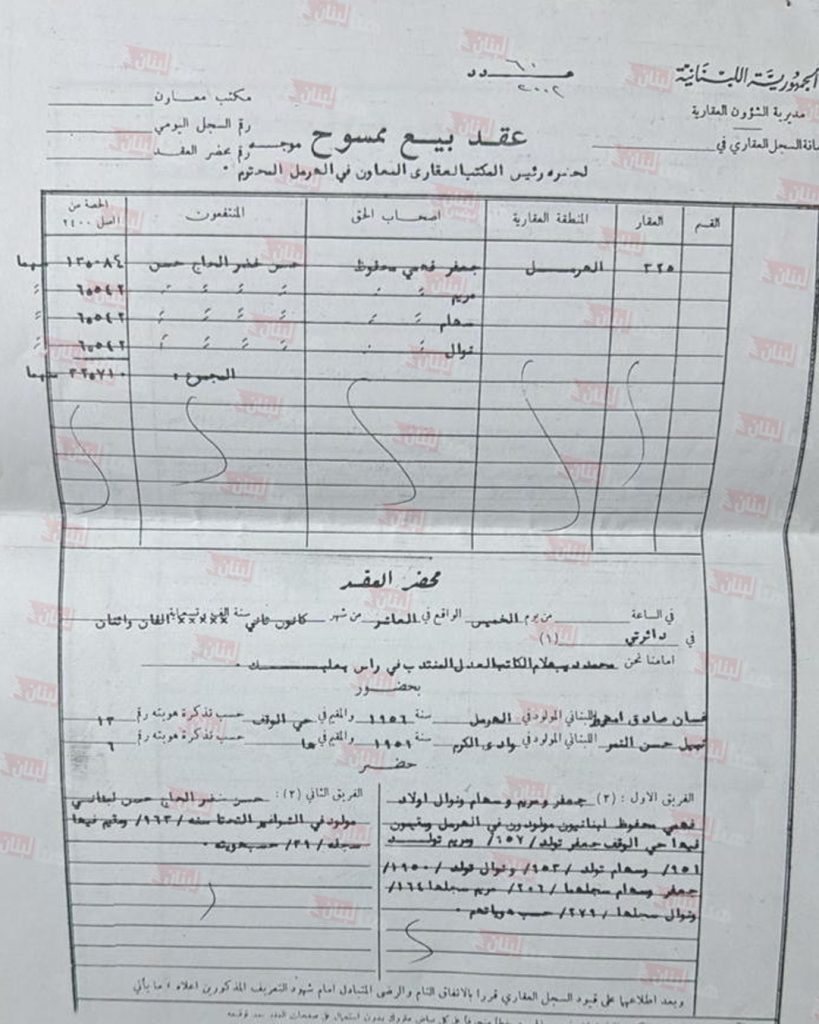 الجمهورية اللبنانية
مديرية الشؤون العقارية
انة السجل العقاري في
عدد ٦٠
٢٠٠٢
مكتب معاون
رقم السجل اليومي
رقم محضر العقد
عقد بيع ممسوح موجه
لحضرة رئيس المكتب العقاري المعاون في الهرمل المحترم ٠
القسم العقار المنطقة العقارية اصحاب الحق المنتفعون الحصة من اصل ٢٤٠٠
٣٢٥ الهرمل جعفر فهمي محفوظ حسن خضر الحاج حسن ١٣٥٠٨٤ سهما
مريم ٦٥٥٤٢
سهام ٦٥٥٤٢
نوال ٦٥٥٤٢
المجموع : ٣٣٥٧١٠ سهما
محضر العقد
في الساعة من يوم الخميس الواقع في العاشر من شهر كانون ثاني سنة الف وتسعماية xxxxx الفان واثنان
في دائرتي (١)
امامنا نحن محمد ديب علام الكاتب العدل المنتدب في راس بعلبك ٠
بحضور
غسان صادق اللبناني المولود في الهرمل سنة ١٩٥٦ والمقيم في حي الوقف حسب تذكرة هويته رقم ١٣
نبيل حسن النمر اللبناني المولود في وادي الكرم سنة ١٩٥١ والمقيم في ها حسب تذكرة هويته رقم ٦
حضر
الفريق الاول : (٢) جعفر ومريم وسهام ونوال اولاد
فهمي محفوظ لبنانيون مولودون في الهرمل ومقيمون
فيها حي الوقف جعفر تولد /٦٥٧/ ومريم تولد
٩٥١/ وسهام تولد /٩٥٣/ ونوال تولد /١٩٥٠
جعفر وسهام سجلهما /٢٠٦/ مريم سجلها ١٦٤/
ونوال سجلها /٢٧٩/ حسب هوياتهم ٠
الفريق الثاني (٢) : حسن خضر الحاج حسن لبناني
مولود في الشواغير التحتا سنة /٩٦٣/ ومقيم فيها
سجله /٢٩/ حسب هويته ٠
وبعد اطلاعهما على قيود السجل العقاري قررا بالاتفاق التام والرضى المتبادل امام شهود التعريف المذكورين اعلاه ، ما يأتي